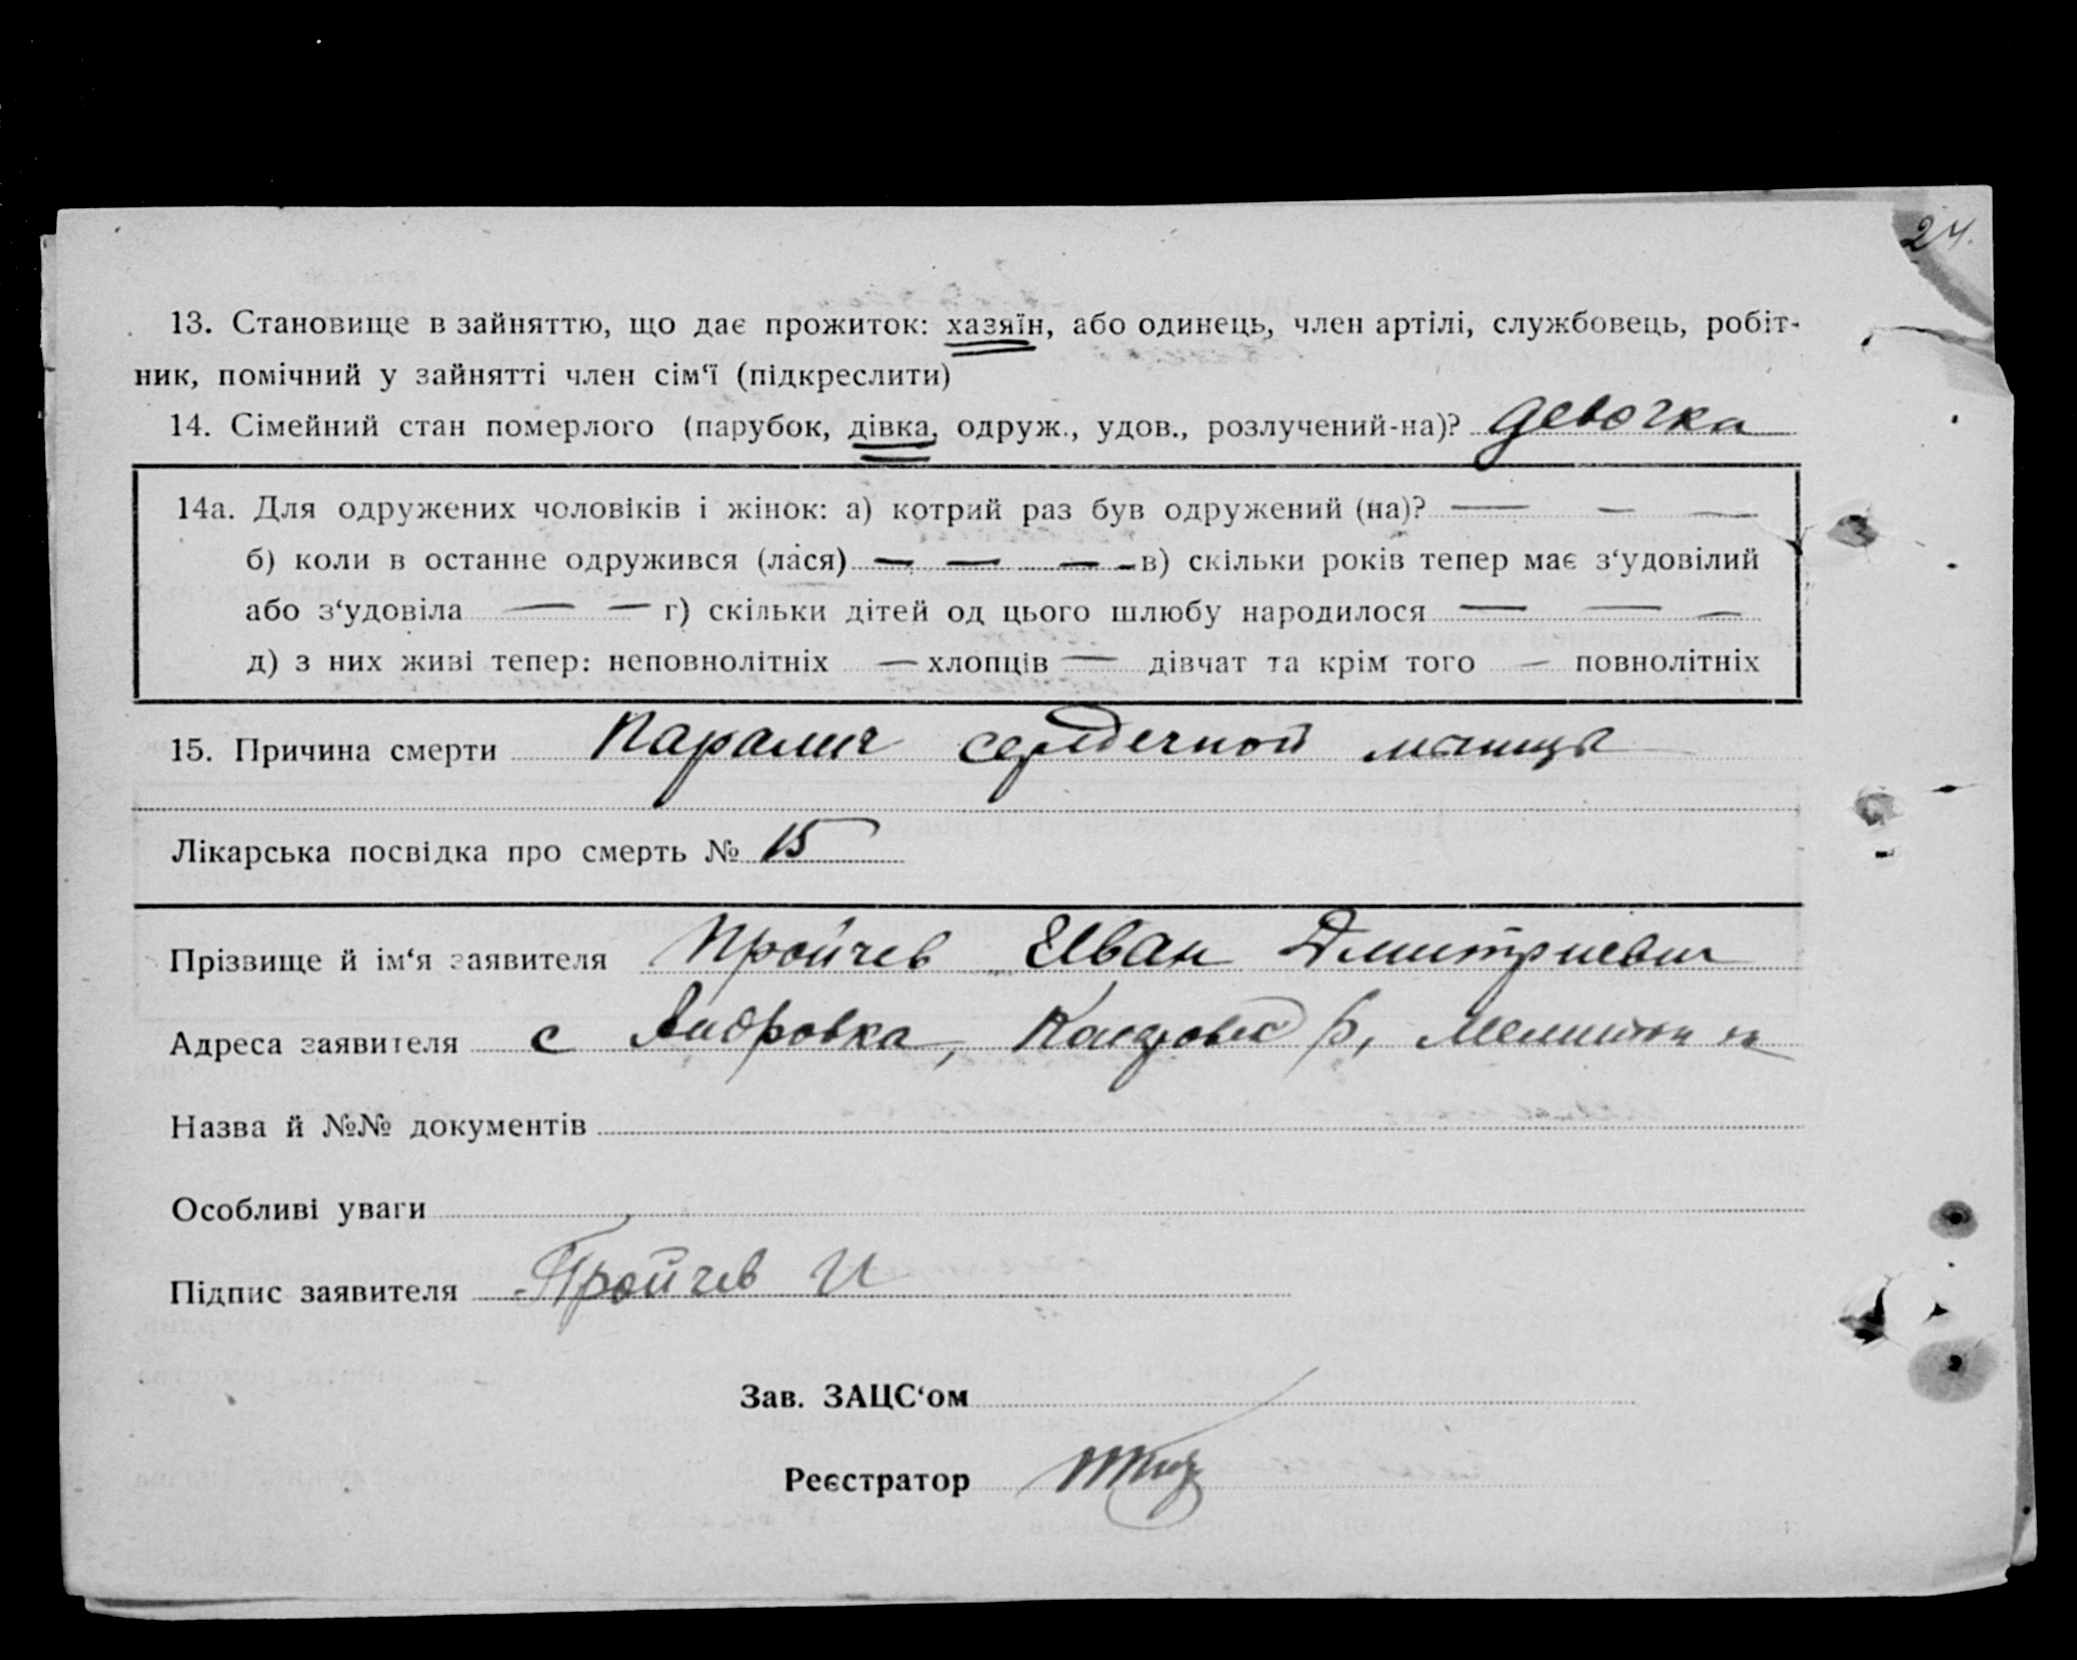 24.
13. Становище в зайняттю, що дає прожиток: хазяїн, або одинець, член артілі, службовець, робіт-
ник, помічний у зайнятті член сім‘ї (підкреслити)
14. Сімейний стан померлого (парубок, дівка, одруж., удов., розлучений-на)? девочка
14а. Для одружених чоловіків і жінок: а) котрий раз був одружений (на)? — — —
б) коли в останне одружився (лася) — — — — в) скільки років тепер має з‘удовілий
або з‘удовіла — — г) скільки дітей од цього шлюбу народилося — — —
д) з них живі тепер: неповнолітніх — хлопців — дівчат та крім того — повнолітніх
15. Причина смерти Паралич сердечной мышцы
Лікарська посвідка про смерть № 15
Прізвище й ім‘я заявителя Пройчев Иван Дмитриевич
Адреса заявителя с Андровка, р,
Назва й №№ документів
Особливі уваги
Підпис заявителя Пройчев И
Зав. ЗАЦС‘ом
Реєстратор